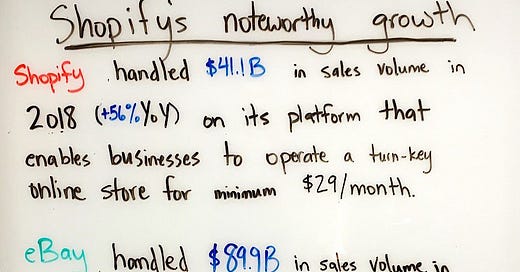 Shopify's noteworthy growth
Shopify handled $41.1B in sales volume in
2018 (+56% YoY) on its platform that
enables businesses to operate a turn-key
online store for minimum $29/month.
eBay handled $89.9B in sales volume in